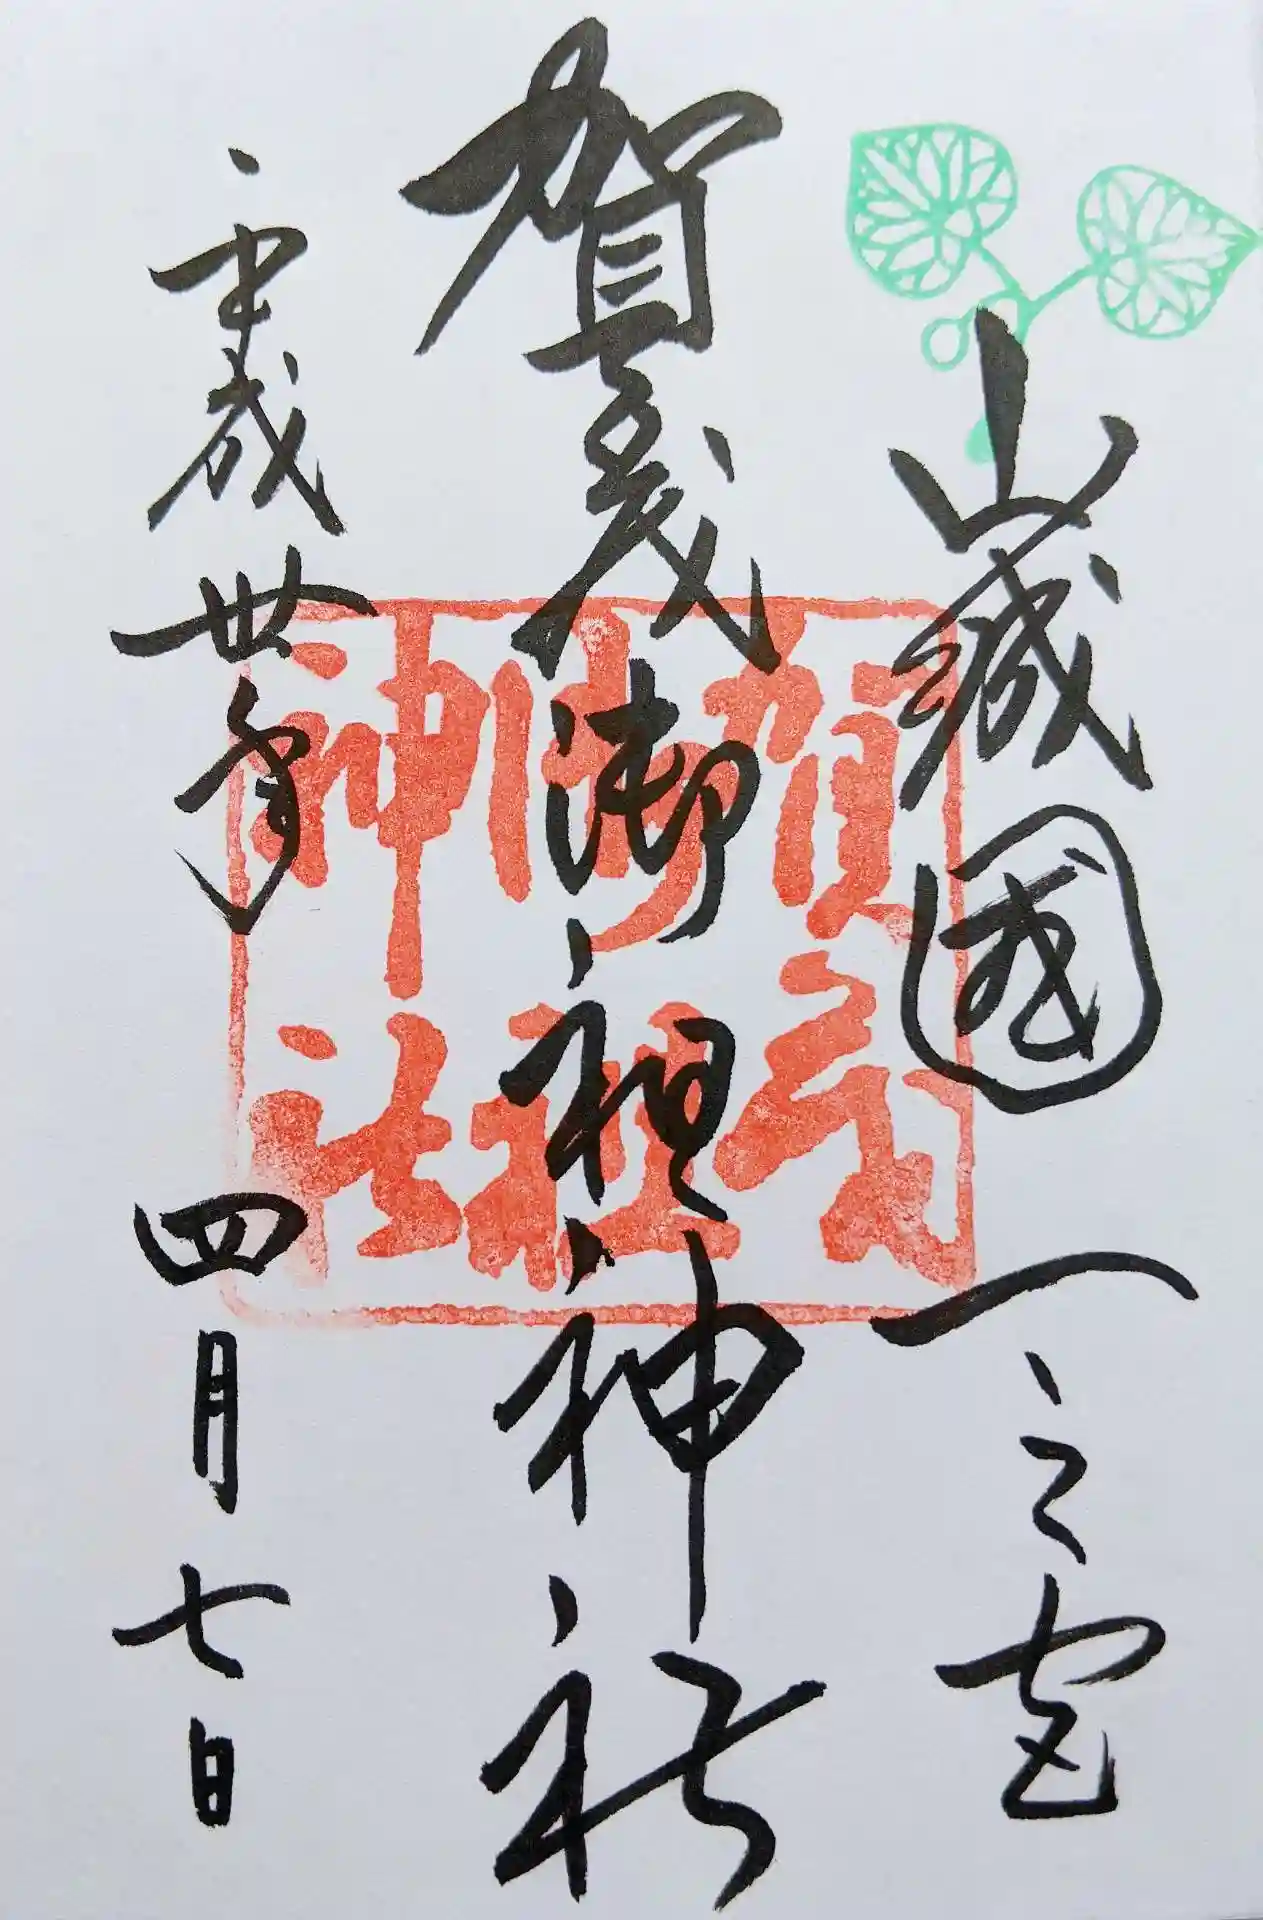 山城國一之宮
賀茂御祖神社
平成丗年四月七日
賀茂
御祖
神社